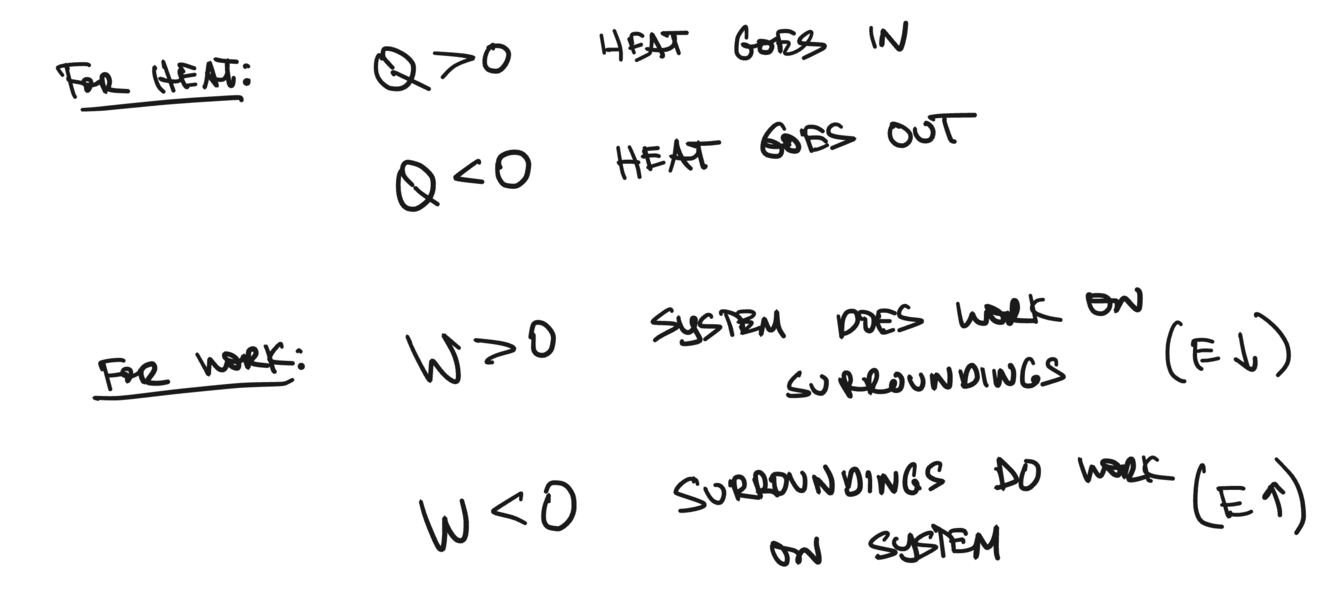 FOR HEAT: Q > 0 HEAT GOES IN
Q < 0 HEAT GOES OUT
FOR WORK: W > 0 SYSTEM DOES WORK ON
SURROUNDINGS (E ↓)
W < 0 SURROUNDINGS DO WORK
ON SYSTEM (E ↑)